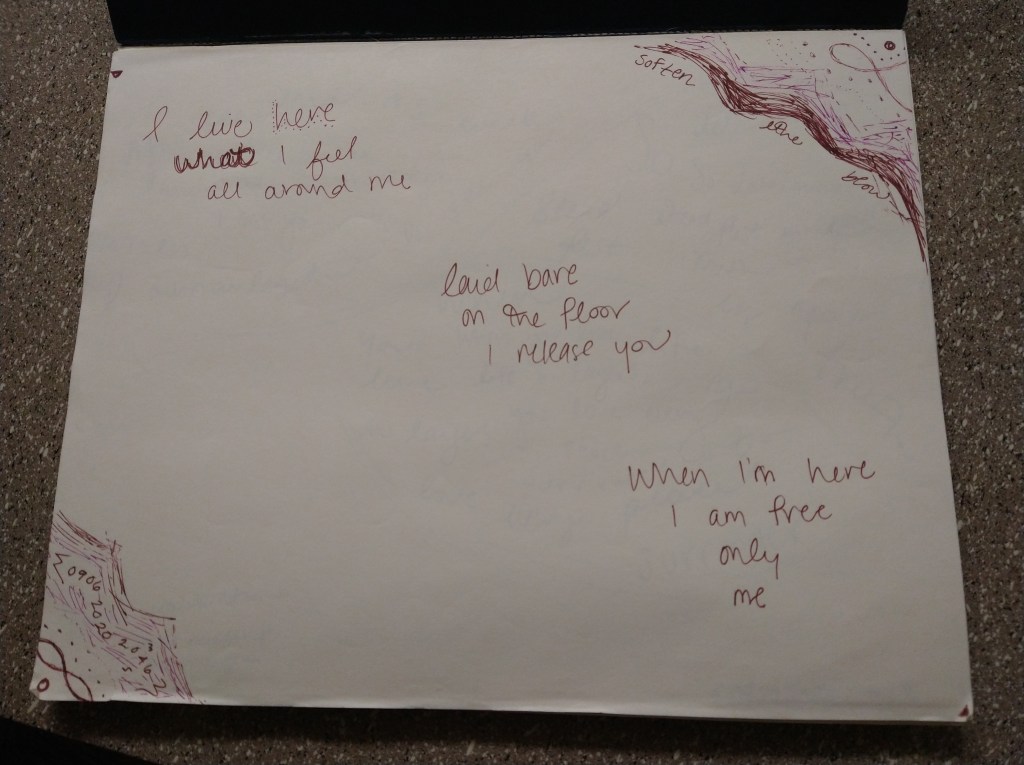 I live here
what I feel
all around me
soften
the
blow
laid bare
on the floor
I release you
When I'm here
I am free
only
me
0906 2020